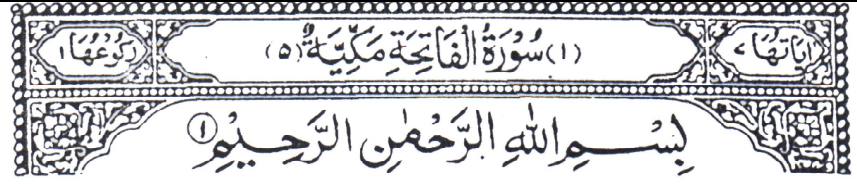 اٰیَاتُهَا ٧ (١) سُوْرَةُ الْفَاتِحَةِ مَكِّيَّةٌ (٥) رُكُوْعُهَا ١
بِسْمِ اللّٰهِ الرَّحْمٰنِ الرَّحِيْمِ ١